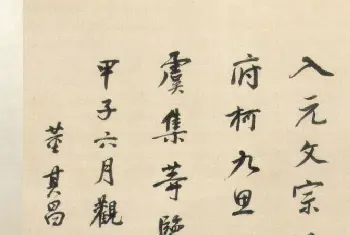 入元文宗
府柯九思
虞集等臨
甲子六月觀
董其昌